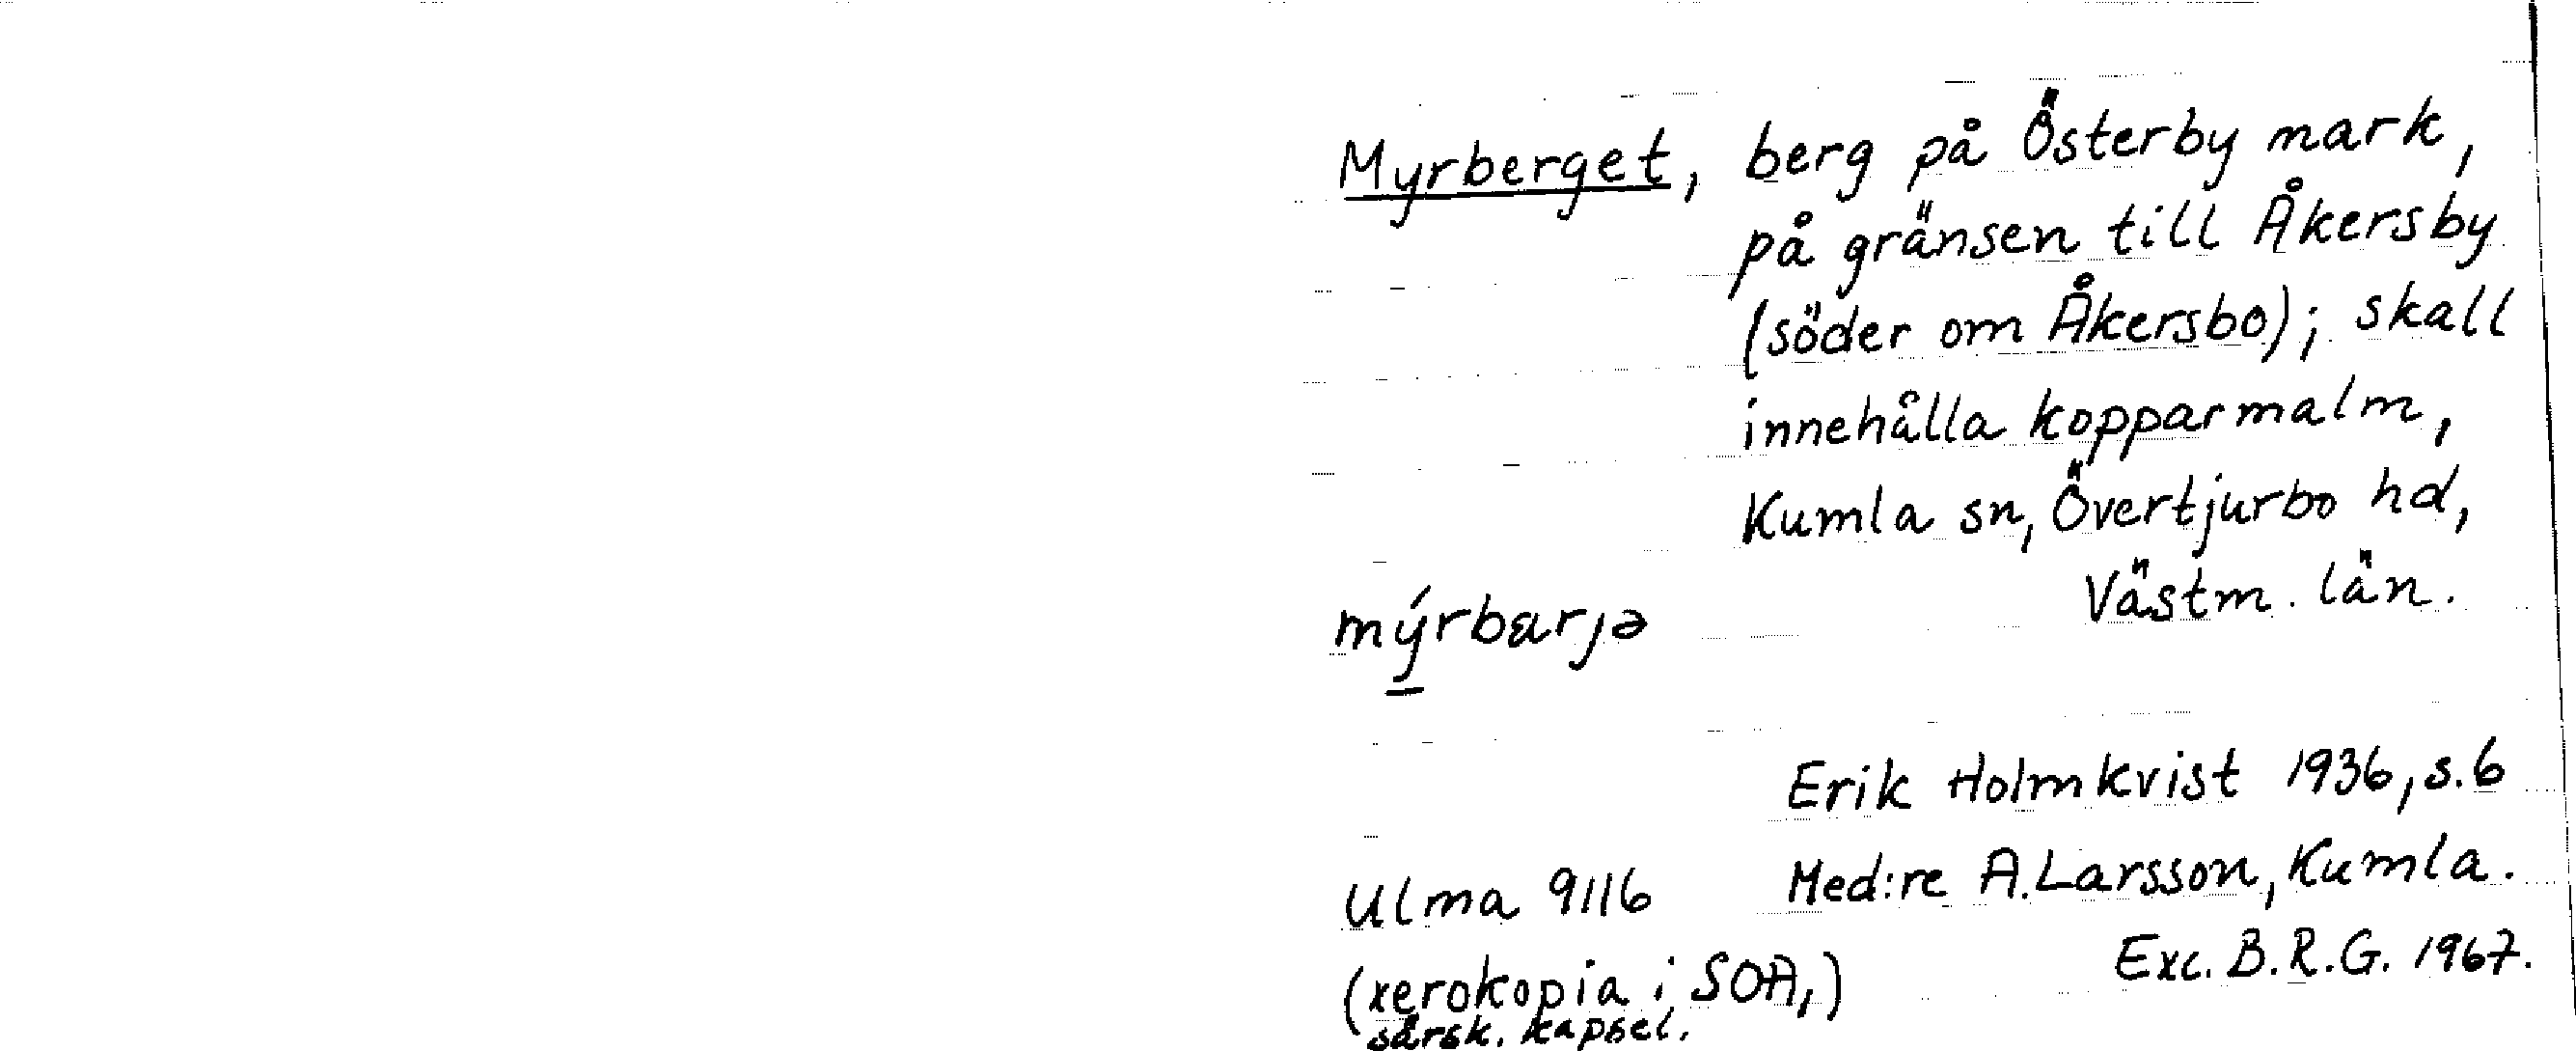 Myrberget, berg på Österby mark,
på gränsen till Åkersby
(söder om Åkersbo); skall
innehålla kopparmalm,
Kumla sn, Övertjurbo hd,
Västm. län.
mý̱rbærjə
Erik Holmkvist 1936, s. 6
Ulma 9116 Med:re A. Larsson, Kumla.
(xerokopia i SOA,) Exc. B.R.G. 1967.
särsk. kapsel.